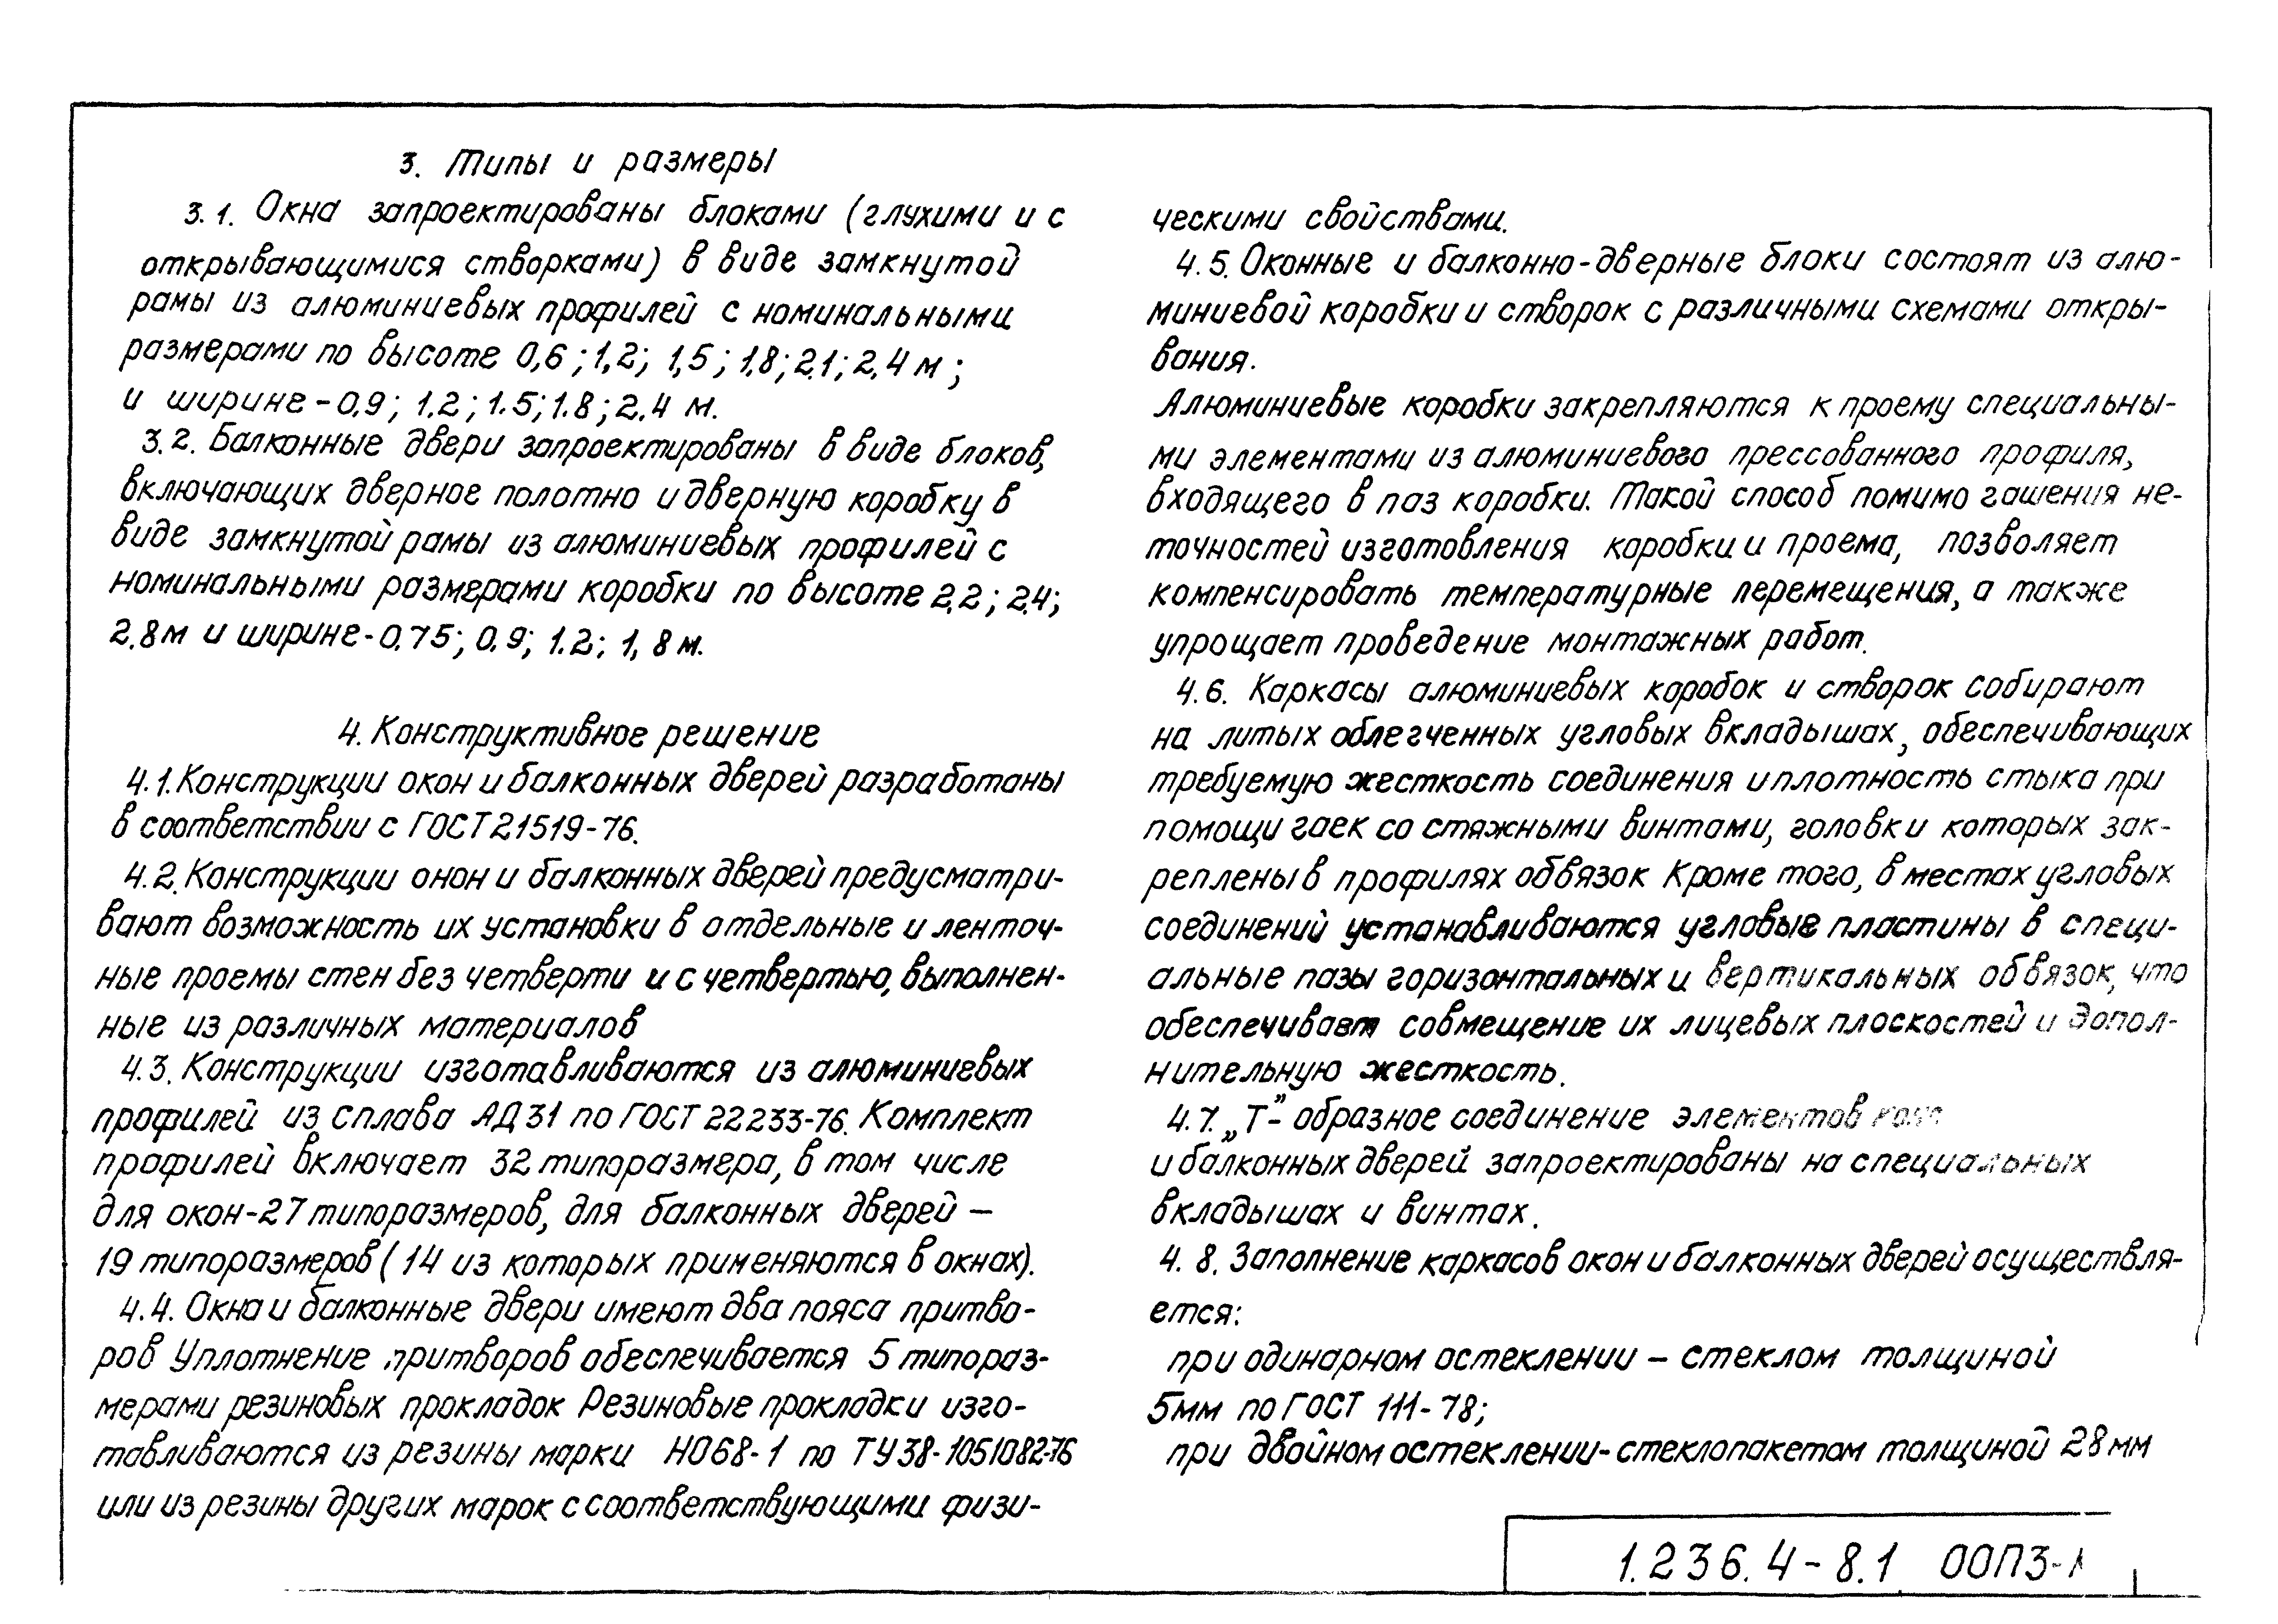 3. Типы и размеры
3.1. Окна запроектированы блоками (глухими и с
открывающимися створками) в виде замкнутой
рамы из алюминиевых профилей с номинальными
размерами по высоте 0,6; 1,2; 1,5; 1.8; 2.1; 2.4 м;
и ширине - 0,9; 1.2; 1.5; 1.8; 2.4 м.
3.2. Балконные двери запроектированы в виде блоков,
включающих дверное полотно и дверную коробку в
виде замкнутой рамы из алюминиевых профилей с
номинальными размерами коробки по высоте 2.2; 2.4;
2.8м и ширине - 0.75; 0.9; 1.2; 1,8 м.
4. Конструктивное решение
4.1. Конструкции окон и балконных дверей разработаны
в соответствии с ГОСТ 21519-76.
4.2. Конструкции онон и балконных дверей предусматри-
вают возможность их установки в отдельные и ленточ-
ные проемы стен без четверти и с четвертью, выполнен-
ные из различных материалов
4.3. Конструкции изготавливаются из алюминиевых
профилей из сплава АД31 по ГОСТ 22233-76. Комплект
профилей включает 32 типоразмера, в том числе
для окон-27 типоразмеров, для балконных дверей —
19 типоразмеров (14 из которых применяются в окнах).
4.4. Окна и балконные двери имеют два пояса притво-
ров Уплотнение притворов обеспечивается 5 типораз-
мерами резиновых прокладок Резиновые прокладки изго-
тавливаются из резины марки НО68-1 по ТУ38-1051082-76
или из резины других марок с соответствующими физи-
ческими свойствами.
4.5. Оконные и балконно-дверные блоки состоят из алю-
миниевой коробки и створок с различными схемами откры-
вания.
Алюминиевые коробки закрепляются к проему специальны-
ми элементами из алюминиевого прессованного профиля,
входящего в паз коробки. Такой способ помимо гашения не-
точностей изготовления коробки и проема, позволяет
компенсировать температурные перемещения, а также
упрощает проведение монтажных работ.
4.6. Каркасы алюминиевых коробок и створок собирают
на литых облегченных угловых вкладышах, обеспечивающих
требуемую жесткость соединения и плотность стыка при
помощи гаек со стяжными винтами, головки которых зак-
реплены в профилях обвязок Кроме того, в местах угловых
соединений устанавливаются угловые пластины в специ-
альные пазы горизонтальных и вертикальных обвязок, что
обеспечивает совмещение их лицевых плоскостей и допол-
нительную жесткость.
4.7. „Т-” образное соединение элементов
и балконных дверей запроектированы на специальных
вкладышах и винтах.
4.8. Заполнение каркасов окон и балконных дверей осуществля-
ется:
при одинарном остеклении – стеклом толщиной
5мм по ГОСТ 111-78;
при двойном остеклении-стеклопакетом толщиной 28мм
1.236.4-8.1 00ПЗ-